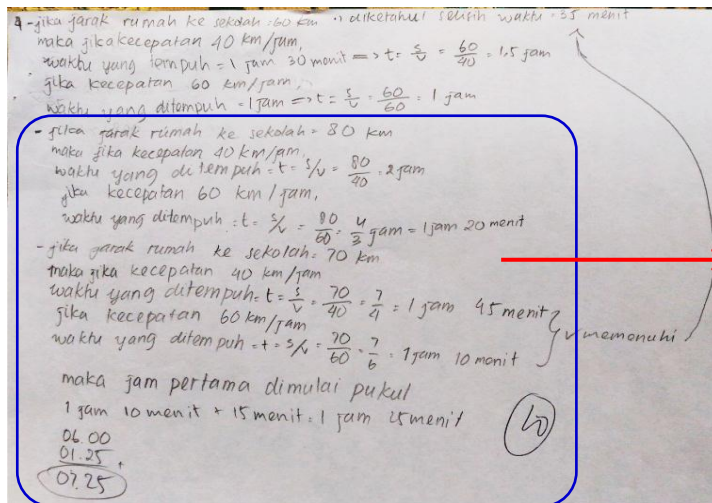 4 - jika jarak rumah ke sekolah = 60 km .. diketahui selisih waktu = 35 menit
maka jika kecepatan 40 km/jam,
waktu yang tempuh = 1 jam 30 menit => t = s/v = 60/40 = 1,5 jam
jika kecepatan 60 km/jam,
waktu yang ditempuh = 1 jam => t = s/v = 60/60 = 1 jam
- jika jarak rumah ke sekolah = 80 km
maka jika kecepatan 40 km/jam,
waktu yang di tempuh = t = s/v = 80/40 = 2 jam
jika kecepatan 60 km/jam,
waktu yang ditempuh = t = s/v = 80/60 = 4/3 jam = 1 jam 20 menit
- jika jarak rumah ke sekolah = 70 km
maka jika kecepatan 40 km/jam
waktu yang ditempuh = t = s/v = 70/40 = 7/4 = 1 jam 45 menit
jika kecepatan 60 km/jam
waktu yang ditempuh = t = s/v = 70/60 = 7/6 = 1 jam 10 menit
v memenuhi
maka jam pertama dimulai pukul
1 jam 10 menit + 15 menit = 1 jam 25 menit
06.00
01.25 +
07.25